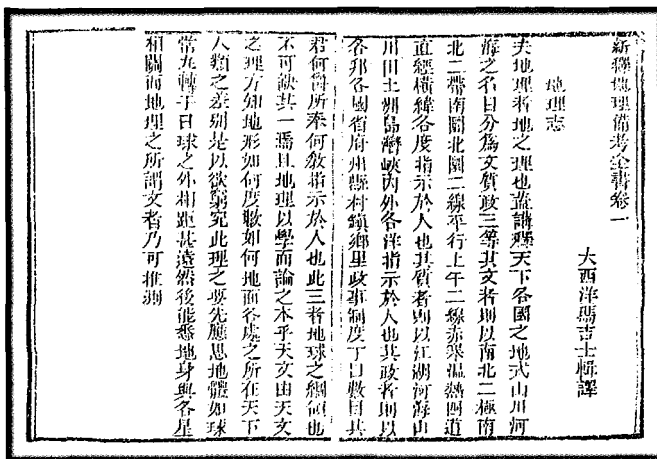 新釋地理備考全書卷一
大西洋瑪吉士輯譯
地理志
夫地理者地之理也蓋講釋天下各國之地式山川河
海之名目分爲文質政三等其文者則以南北二極南
北二帶南圜北圜二線平行上午二線赤寒溫熱四道
直經橫緯各度指示於人也其質者則以江湖河海山
川田土洲島灣峽內外各洋指示於人也其政者則以
各邦各國省府州縣村鎮鄉里政事制度丁口數目其
君何爵所奉何敎指示於人也此三者地球之綱領也
不可缺其一焉且地理以學而論之本乎天文由天文
之理方知地形如何度數如何地面各處之所在天下
人類之差別是以欲窮究此理之要先應思地體如球
常九轉于日球之外相距甚遠然後能悉地身與各星
相關而地理之所謂文者乃可推測